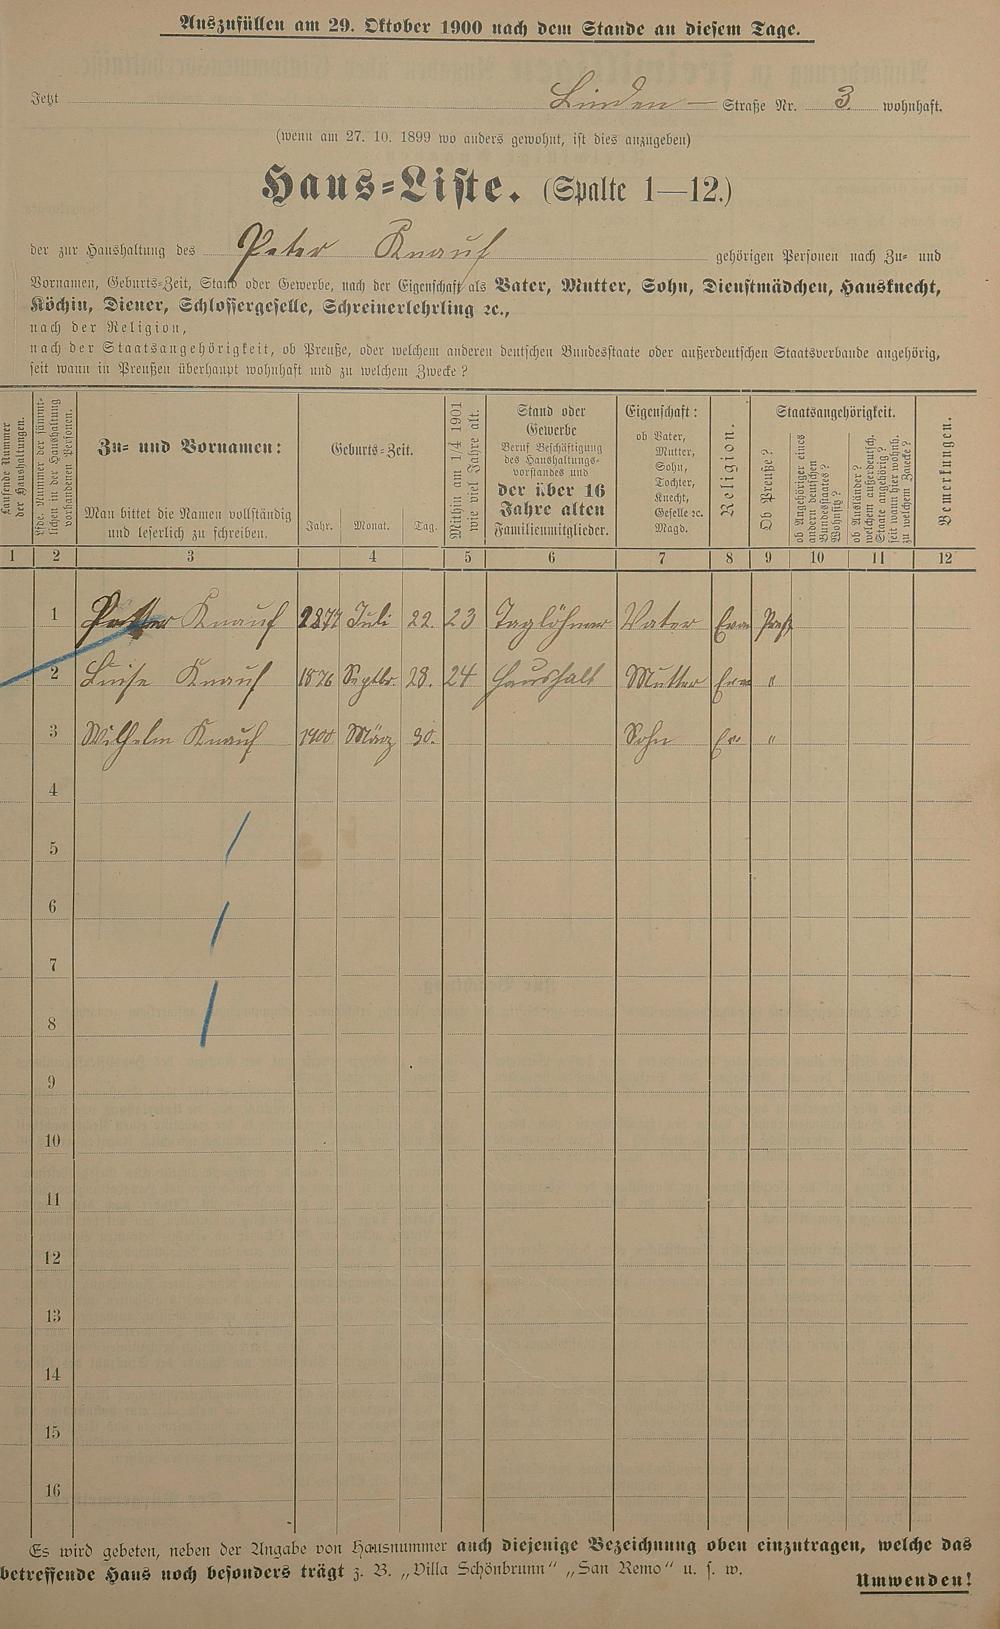 Auszufüllen am 29. Oktober 1900 nach dem Stande an diesem Tage.
Jetzt Linden — Straße Nr. 3 wohnhaft.
(wenn am 27. 10. 1899 wo anders gewohnt, ist dies anzugeben)
Haus-Liste. (Spalte 1—12.)
der zur Haushaltung des Peter Knauf gehörigen Personen nach Zu- und
Vornamen, Geburts-Zeit, Stand oder Gewerbe, nach der Eigenschaft als Vater, Mutter, Sohn, Dienstmädchen, Hausknecht,
Köchin, Diener, Schlossergeselle, Schreinerlehrling ꝛc.,
nach der Religion,
nach der Staatsangehörigkeit, ob Preuße, oder welchem anderen deutschen Bundesstaate oder außerdeutschen Staatsverbande angehörig,
seit wann in Preußen überhaupt wohnhaft und zu welchem Zwecke?
Laufende Nummer
der Haushaltungen.
Lfde. Nummer der sämmt-
lichen in der Haushaltung
vorhandenen Personen.
Zu- und Vornamen:
Man bittet die Namen vollständig
und leserlich zu schreiben.
Geburts-Zeit.
Jahr. Monat. Tag.
Mithin am 1/4 1901
wie viel Jahre alt.
Stand oder
Gewerbe
Beruf Beschäftigung
des Haushaltungs-
vorstandes und
der über 16
Jahre alten
Familienmitglieder.
Eigenschaft:
ob Vater,
Mutter,
Sohn,
Tochter,
Knecht,
Geselle ꝛc.
Magd.
Religion.
Staatsangehörigkeit.
Ob Preuße?
ob Angehöriger eines
andern deutschen
Bundesstaates?
Wohnsitz?
ob Ausländer?
welchem außerdeutsch.
Staate angehörig?
seit wann hier wohnh.
zu welchem Zwecke?
Bemerkungen.
1 2 3 4 5 6 7 8 9 10 11 12
1 Peter Knauf 1877 Juli 22. 23 Taglöhner Vater Eva Preß
2 Luise Knauf 1876 Septbr. 28. 24 Haushalt Mutter Eva "
3 Wilhelm Knauf 1900 März 30. Sohn Ev "
4
5
6
7
8
9
10
11
12
13
14
15
16
Es wird gebeten, neben der Angabe von Hausnummer auch diejenige Bezeichnung oben einzutragen, welche das
betreffende Haus noch besonders trägt z. B. „Villa Schönbrunn“ „San Remo“ u. s. w.
Umwenden!